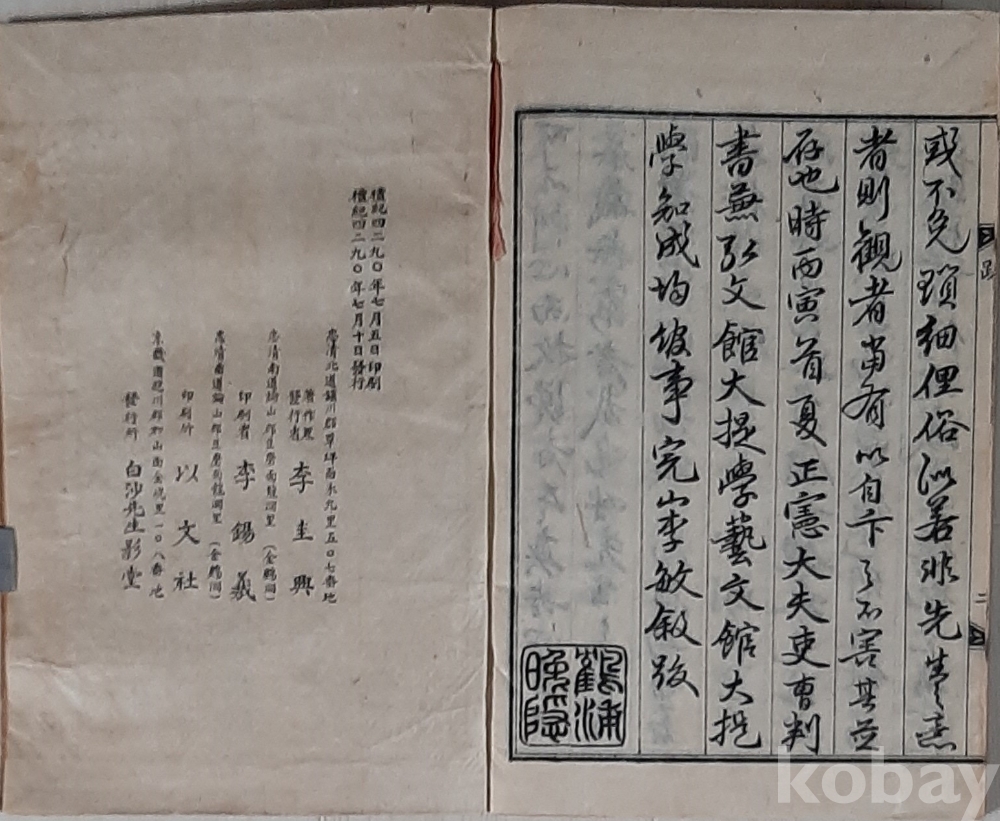 跋
二
或不免瑣細俚俗似若非先生
者則觀者當有以自卞了不害其並
存也時丙寅首夏正憲大夫吏曹判
書兼弘文館大提學藝文館大提
學知成均館事完山李敏敘跋
鶴浦
晚隱
檀紀四二九〇年七月五日印刷
檀紀四二九〇年七月十日發行
忠清北道鎭川郡草坪面永九里五〇七番地
著作兼
發行者 李圭興
忠清南道論山郡豆磨面龍洞里(金鷄洞)
印刷者 李錫羲
忠清南道論山郡豆磨面龍洞里(金鷄洞)
印刷所 以文社
京畿道抱川郡加山面金峴里一〇八番地
發行所 白沙先生影堂
kobay